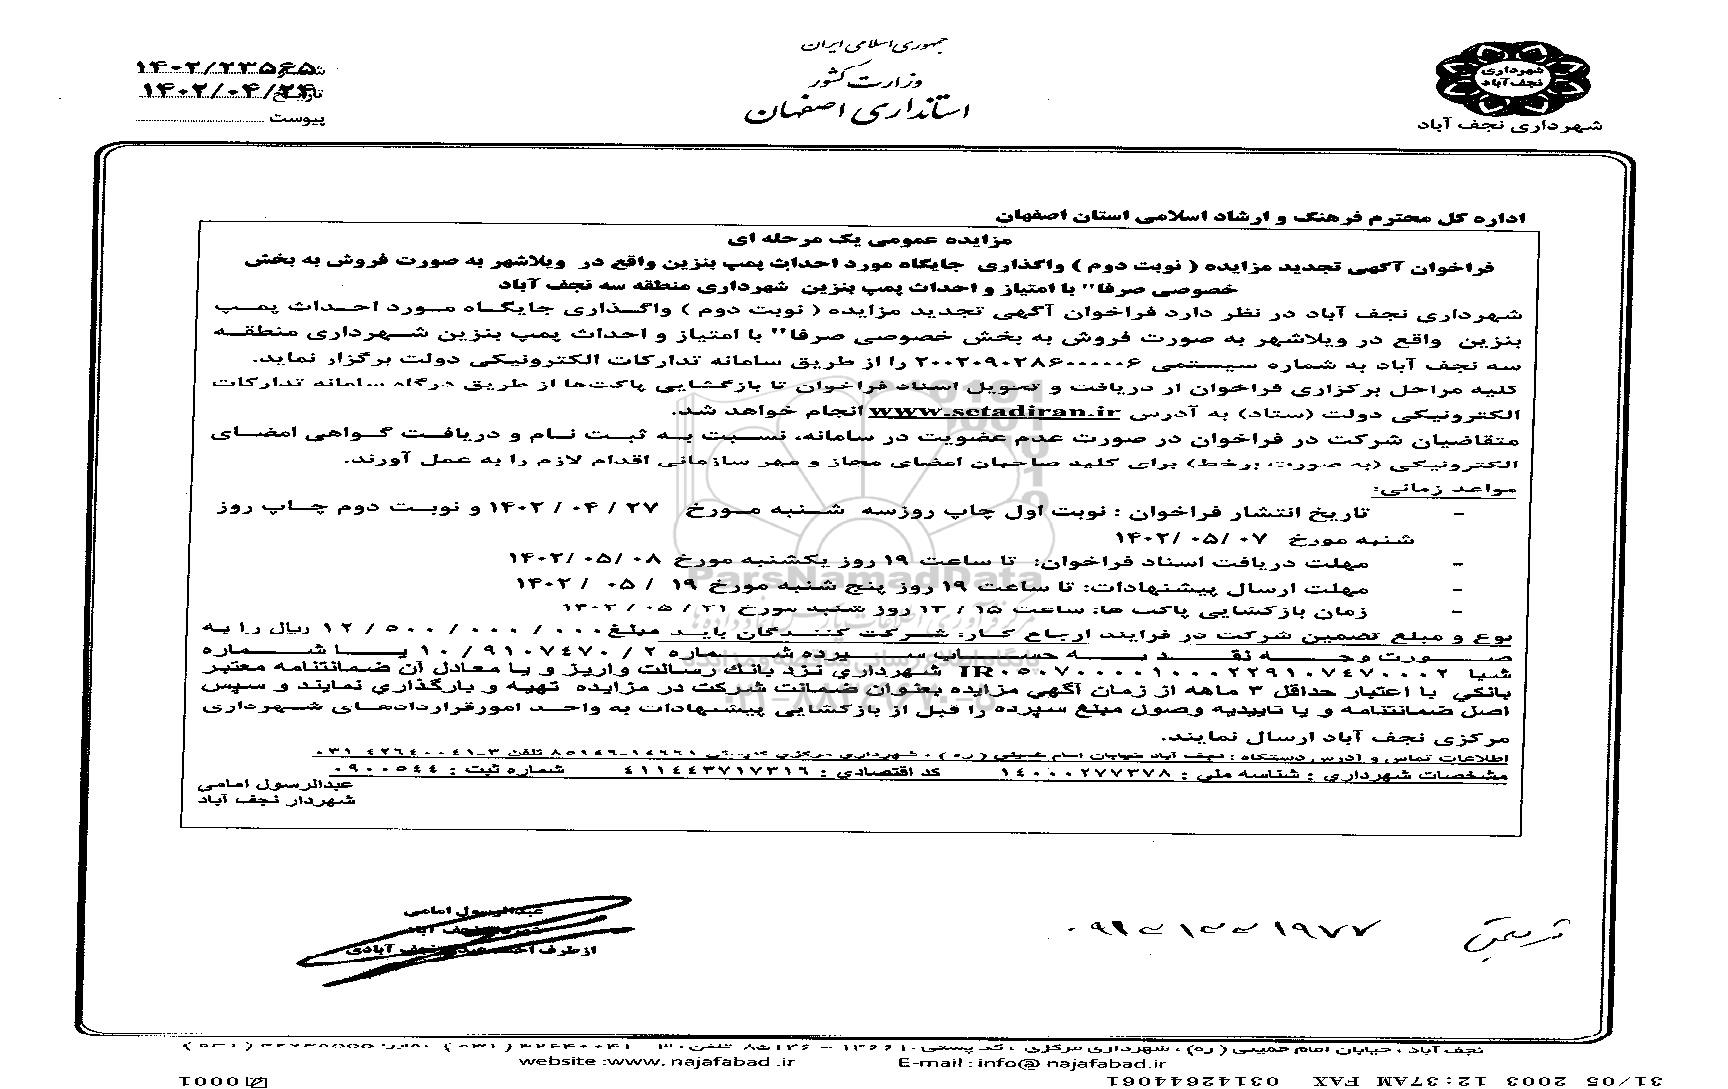 جمهوری اسلامی ایران
وزارت کشور
استانداری اصفهان
شهرداری
نجف آباد
شهرداری نجف آباد
۱۴۰۲/۲۳۵۶۵
تاریخ ۱۴۰۲/۰۴/۲۴
پیوست
اداره کل محترم فرهنگ و ارشاد اسلامی استان اصفهان
مزایده عمومی یک مرحله ای
فراخوان آگهی تجدید مزایده ( نوبت دوم ) واگذاری جایگاه مورد احداث پمپ بنزین واقع در ویلاشهر به صورت فروش به بخش
خصوصی صرفا" با امتیاز و احداث پمپ بنزین شهرداری منطقه سه نجف آباد
شهرداری نجف آباد در نظر دارد فراخوان آگهی تجدید مزایده ( نوبت دوم ) واگذاری جایگاه مورد احداث پمپ
بنزین واقع در ویلاشهر به صورت فروش به بخش خصوصی صرفا" با امتیاز و احداث پمپ بنزین شهرداری منطقه
سه نجف آباد به شماره سیستمی ۲۰۰۲۰۹۰۲۸۶۰۰۰۰۰۶ را از طریق سامانه تدارکات الکترونیکی دولت برگزار نماید.
کلیه مراحل برگزاری فراخوان از دریافت و تحویل اسناد فراخوان تا بازگشایی پاکت‌ها از طریق درگاه سامانه تدارکات
الکترونیکی دولت (ستاد) به آدرس www.setadiran.ir انجام خواهد شد.
متقاضیان شرکت در فراخوان در صورت عدم عضویت در سامانه، نسبت به ثبت نام و دریافت گواهی امضای
الکترونیکی (به صورت برخط) برای کلیه صاحبان امضای مجاز و مهر سازمانی اقدام لازم را به عمل آورند.
مواعد زمانی:
- تاریخ انتشار فراخوان : نوبت اول چاپ روزسه شنبه مورخ ۲۷ / ۰۴ / ۱۴۰۲ و نوبت دوم چاپ روز
شنبه مورخ ۰۷ /۰۵ /۱۴۰۲
- مهلت دریافت اسناد فراخوان: تا ساعت ۱۹ روز یکشنبه مورخ ۰۸ /۰۵ /۱۴۰۲
- مهلت ارسال پیشنهادات: تا ساعت ۱۹ روز پنج شنبه مورخ ۱۹ / ۰۵ / ۱۴۰۲
- زمان بازگشایی پاکت ها: ساعت ۱۵ / ۱۳ روز شنبه مورخ ۲۱ / ۰۵ / ۱۴۰۲
نوع و مبلغ تضمین شرکت در فرایند ارجاع کار: شرکت کنندگان باید مبلغ ۰۰۰ / ۰۰۰ / ۵۰۰ / ۱۲ ریال را به
صورت وجه نقد به حساب سپرده شماره ۲ / ۹۱۰۷۴۷۰ / ۱۰ یا شماره
شبا IR۰۵۰۷۰۰۰۰۱۰۰۰۲۲۹۱۰۷۴۷۰۰۰۲ شهرداری نزد بانك رسالت واریز و یا معادل آن ضمانتنامه معتبر
بانکي با اعتبار حداقل ۳ ماهه از زمان آگهي مزایده بعنوان ضمانت شرکت در مزایده تهیه و بارگذاري نمایند و سپس
اصل ضمانتنامه و یا تاییدیه وصول مبلغ سپرده را قبل از بازگشایی پیشنهادات به واحد امورقراردادهای شهرداری
مرکزی نجف آباد ارسال نمایند.
اطلاعات تماس و آدرس دستگاه : نجف آباد خیابان امام خمینی (ره) ، شهرداری مرکزی کدپستی ۱۴۶۶۱-۸۵۱۴۶ تلفن ۳-۰۳۱۴۲۶۴۰۰۴۱
مشخصات شهرداری : شناسه ملی : ۱۴۰۰۰۲۷۷۳۷۸ کد اقتصادی : ۴۱۱۴۴۳۷۱۷۳۱۶ شماره ثبت : ۰۹۰۰۵۴۴
عبدالرسول امامی
شهردار نجف آباد
ParsNamadData
عبدالرسول امامی
نجف آباد
از طرف
نجف آباد ، خیابان امام خمینی (ره) ، شهرداری مرکزی
website :www. najafabad .ir E-mail : info@ najafabad.ir
31/05 2003 12:37AM FAX 03142644061
0001